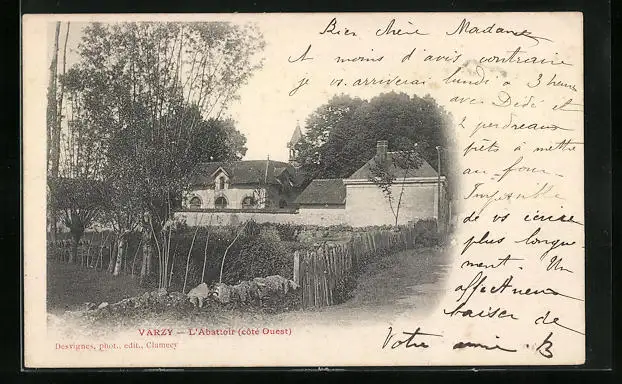 Bien chère Madame
A moins d'avis contraire
je vs. arriverai lundi à 3 heures
avec Dédé et
2 perdreaux
prêts à mettre
au four.
Impossible
de vs écrire
plus longue-
ment. Un
affectueux
baiser de
Votre amie.
VARZY — L'Abattoir (côté Ouest)
Desvignes, phot., edit., Clamecy